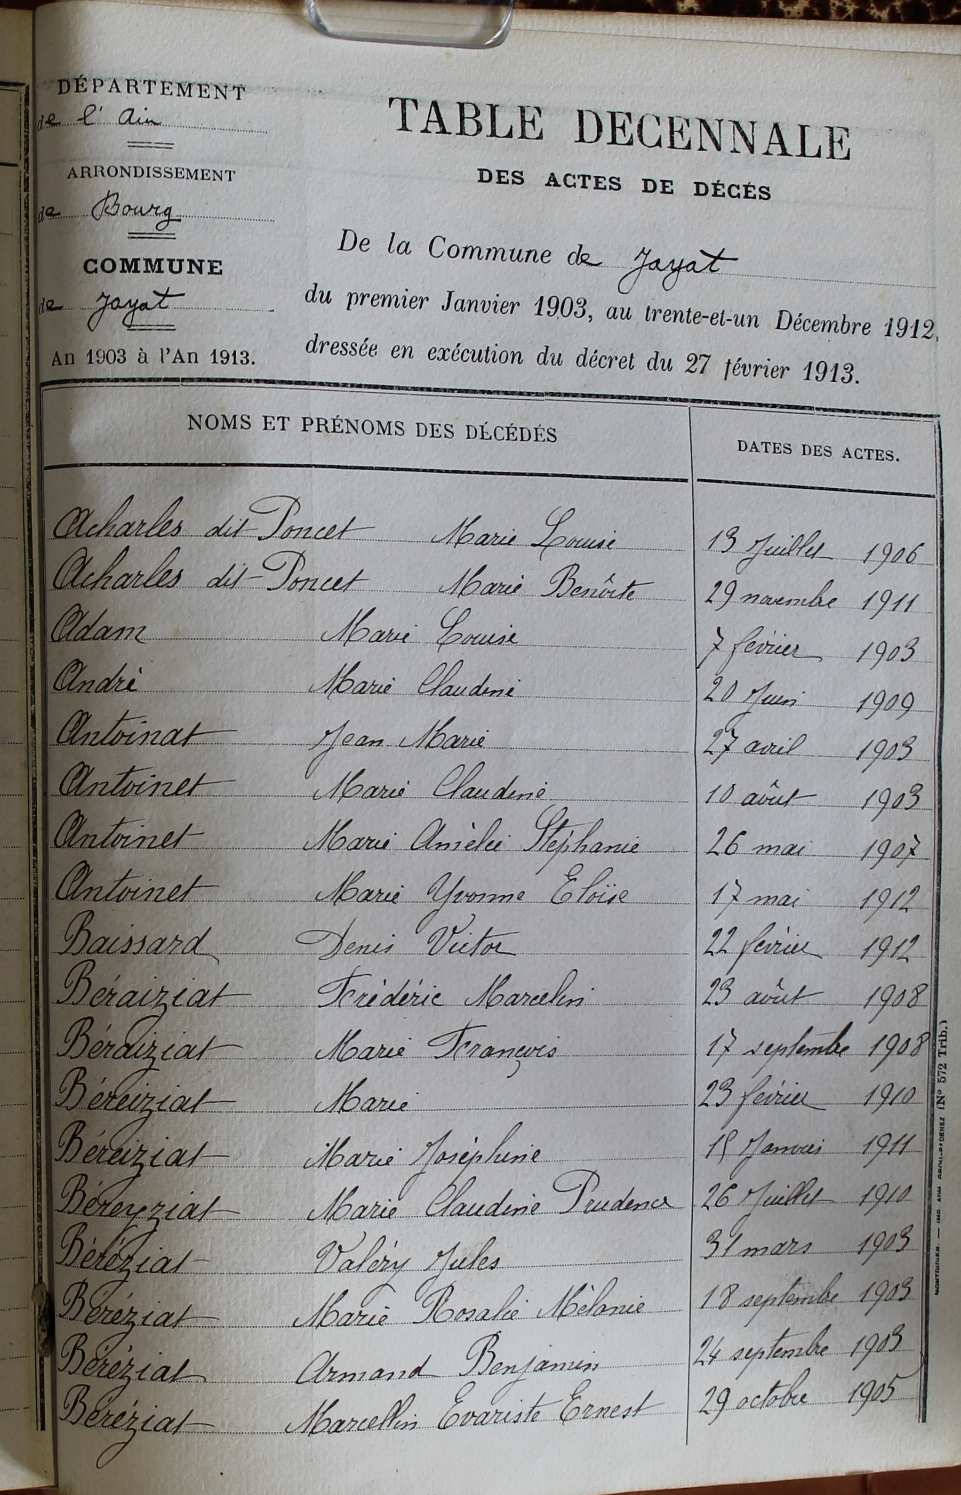 DÉPARTEMENT
de l'Ain
ARRONDISSEMENT
de Bourg
COMMUNE
de Jayat
An 1903 à l'An 1913.
TABLE DECENNALE
DES ACTES DE DÉCÉS
De la Commune de Jayat
du premier Janvier 1903, au trente-et-un Décembre 1912,
dressée en exécution du décret du 27 février 1913.
NOMS ET PRÉNOMS DES DÉCÉDÉS DATES DES ACTES.
Acharles dit Poncet Marie Louise 13 Juillet 1906
Acharles dit Poncet Marie Benôite 29 novembre 1911
Adam Marie Louise 7 février 1903
André Marie Claudine 20 Juin 1909
Antoinat Jean Marie 27 avril 1903
Antoinet Marie Claudine 10 août 1903
Antoinet Marie Amélie Stéphanie 26 mai 1907
Antoinet Marie Yvonne Eloïse 17 mai 1912
Baissard Denis Victor 22 février 1912
Béraiziat Frédéric Marcelin 23 août 1908
Béraiziat Marie François 17 septembre 1908
Béreiziat Marie 23 février 1910
Béreiziat Marie Joséphine 15 Janvier 1911
Béreyziat Marie Claudine Prudence 26 Juillet 1910
Béréziat Valéry Jules 31 mars 1903
Béréziat Marie Rosalie Mélanie 18 septembre 1903
Béréziat Armand Benjamin 24 septembre 1903
Béréziat Marcellin Evariste Ernest 29 octobre 1905
(N° 572 Trib.)